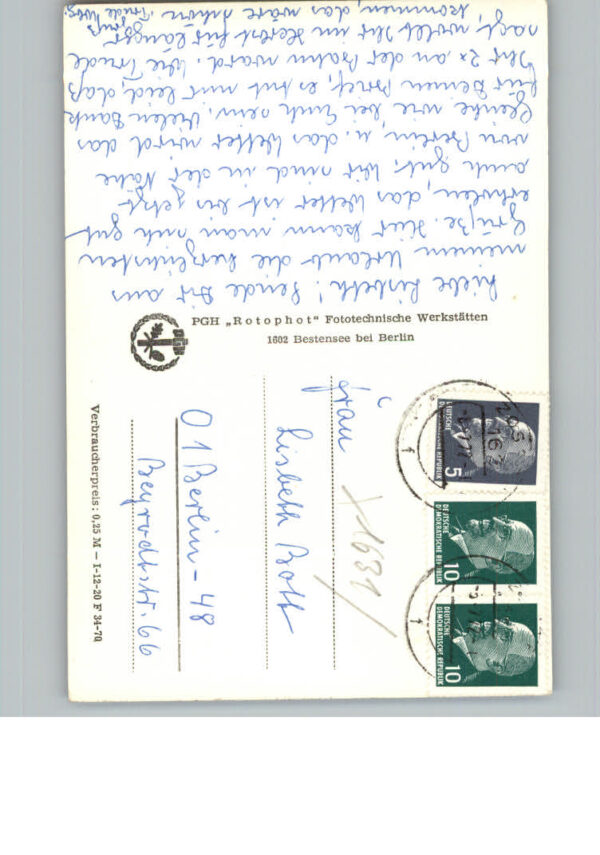 Liebe Lisbeth! Sende Dir aus
meinem Urlaub die herzlichsten
Grüße. Hier kann man sich gut
erholen, das Wetter ist bis jetzt
auch gut. Wir sind in der Nähe
von Berlin, u. das Wetter wird das
Gleiche wie bei Euch sein. Vielen Dank
für Deinen Brief, es tut mir leid, daß
Ihr 2x an der Bahn ward. Wie Trude
sagt, wollt Ihr im Herbst für länger
kommen, das wäre schön.
Gruß
Trude
PGH „Rotophot“ Fototechnische Werkstätten
1602 Bestensee bei Berlin
PGH
Frau
Lisbeth Bott
O 1 Berlin - 48
Beyrodtstr. 66
X1631/
Verbraucherpreis: 0,25 M — I-12-20 F 34-70
DEUTSCHE
DEMOKRATISCHE REPUBLIK
5
DEUTSCHE
DEMOKRATISCHE REPUBLIK
10
DEUTSCHE
DEMOKRATISCHE REPUBLIK
10